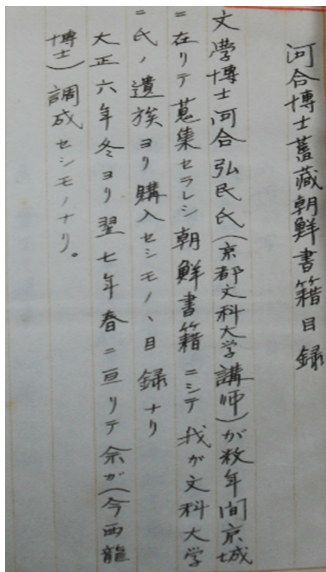 河合博士蒐藏朝鮮書籍目録
文學博士河合弘民氏(京都文科大学講師)が数年間京城
ニ在リテ蒐集セラレシ朝鮮書籍ニシテ我が文科大学
ニ氏ノ遺族ヨリ購入セシモノヽ目録ナリ
大正六年冬ヨリ翌七年春ニ亘リテ余が(今西龍
博士)調成セシモノナリ。